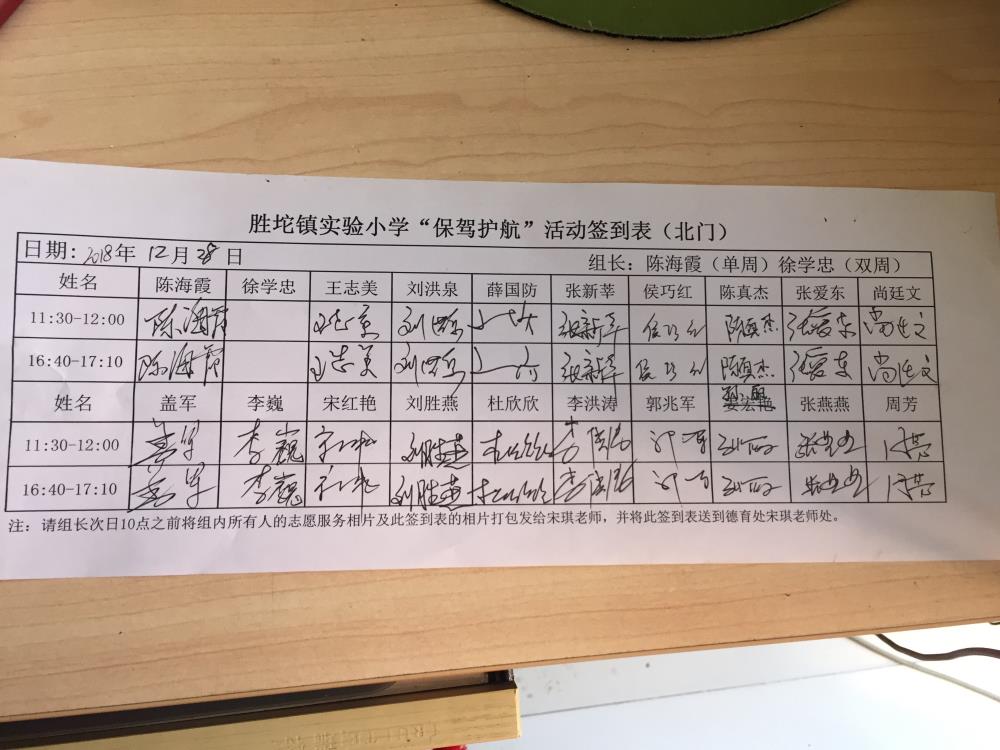 胜坨镇实验小学“保驾护航”活动签到表（北门）
日期：2018年 12月 28日 组长：陈海霞（单周）徐学忠（双周）
姓名 陈海霞 徐学忠 王志美 刘洪泉 薛国防 张新莘 侯巧红 陈真杰 张爱东 尚廷文
11:30-12:00 陈海霞 王志美 刘洪泉 张新莘 侯巧红 陈真杰 张爱东 尚廷文
16:40-17:10 陈海霞 王志美 刘洪泉 张新莘 侯巧红 陈真杰 张爱东 尚廷文
姓名 盖军 李巍 宋红艳 刘胜燕 杜欣欣 李洪涛 郭兆军 张燕燕 周芳
11:30-12:00 盖军 李巍 宋红艳 刘胜燕 杜欣欣 李洪涛 周芳
16:40-17:10 盖军 李巍 宋红艳 刘胜燕 杜欣欣 李洪涛 周芳
注：请组长次日10点之前将组内所有人的志愿服务相片及此签到表的相片打包发给宋琪老师，并将此签到表送到德育处宋琪老师处。